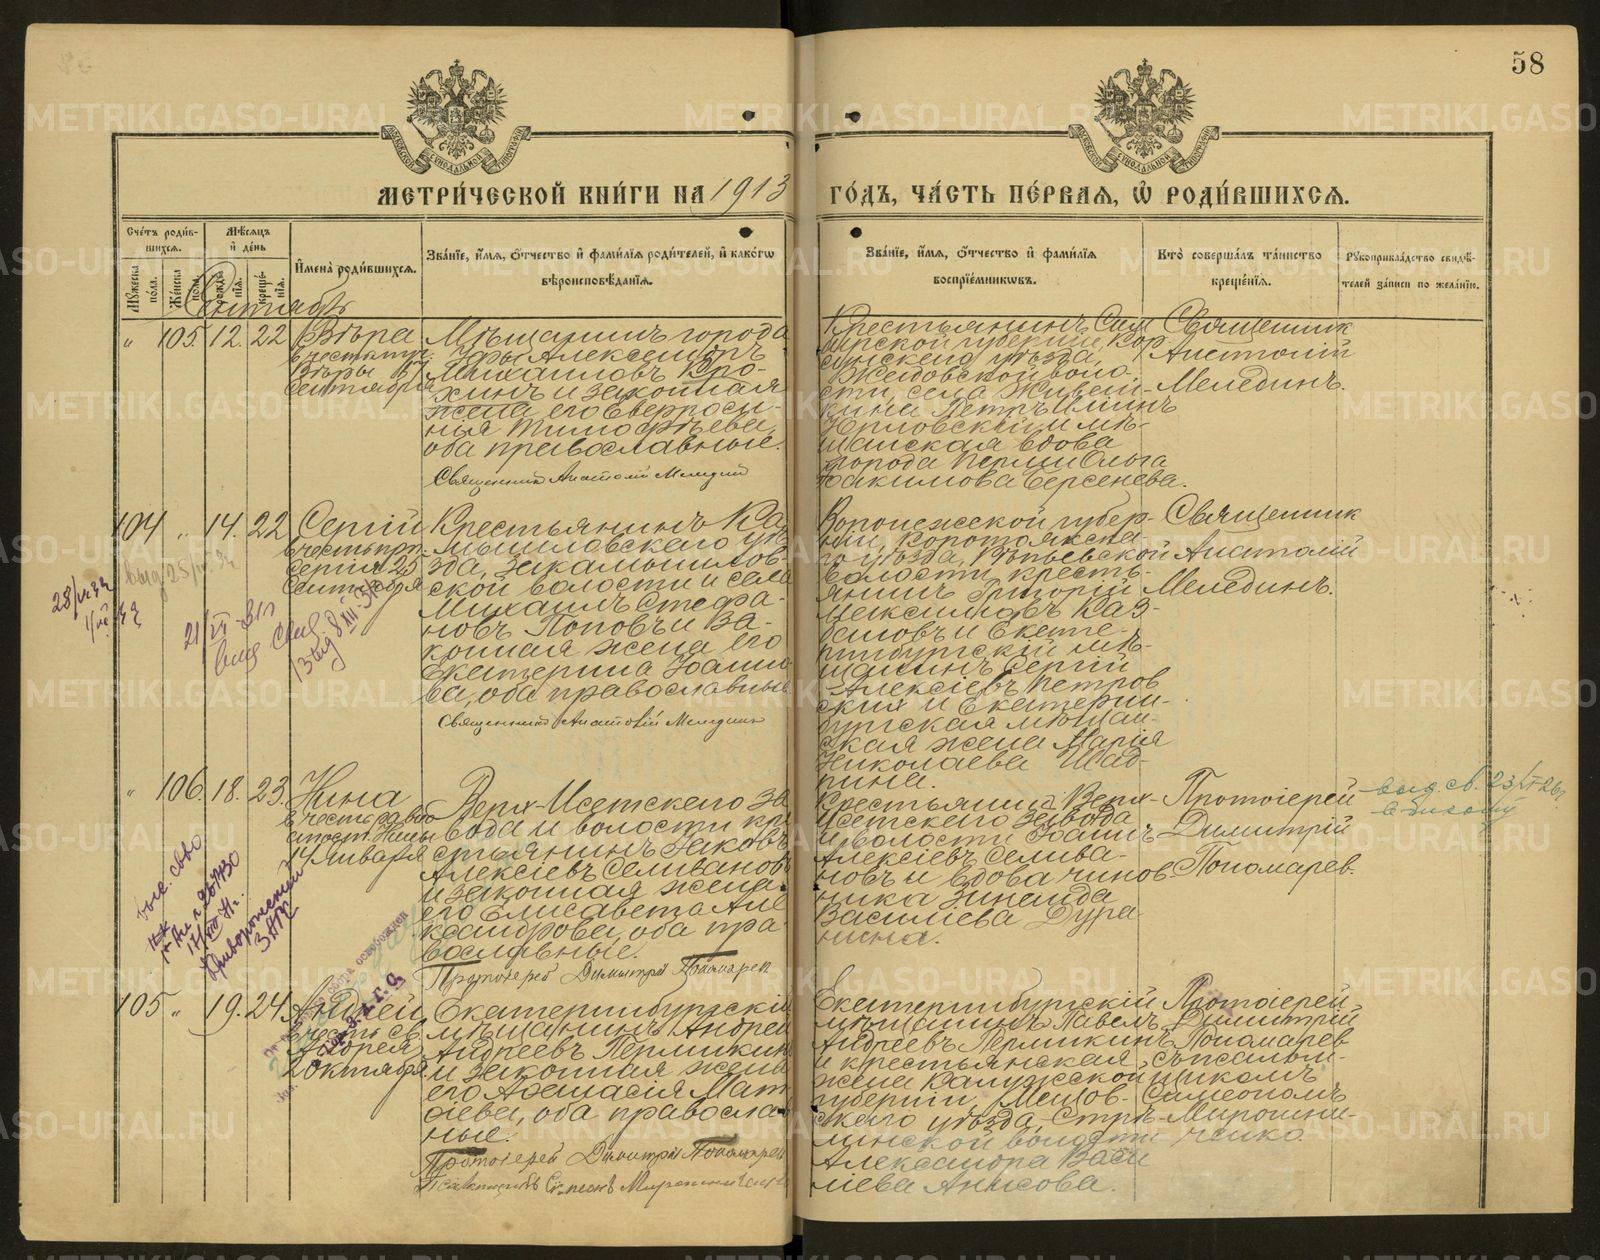 58
МЕТРИ́ЧЕСКОЙ КНИ́ГИ НА 1913 ГО́ДЪ, ЧА́СТЬ ПЕ́РВАЯ, Ѡ҆ РОДИ́ВШИХСЯ.
Сче́тъ роди́в-
шихся.
Мужеска по́ла.
Же́нска по́ла.
Мѣ́сяцъ
и҆ де́нь
рожде́нїя.
креще́нїя.
И҆мена̀ роди́вшихся.
Зва́нїе, и҆́мя, о҆́тчество и҆ фами́лїя роди́телей, и҆ како́гѡ
вѣроисповѣ́данїя.
Зва́нїе, и҆́мя, о҆́тчество и҆ фами́лїя
воспрїе́мникѡвъ.
Кто̀ соверша́лъ та́инство
креще́нїя.
Рꙋкоприкла́дство свидѣ́-
телей за́писи по жела́нїю.
Сентябрь
" 105. 12. 22
Вѣра
въ честь муч.
Вѣры 17
сентября
Мѣщанинъ города
Уфы Алексѣй
Михаиловъ Кро-
хинъ и законная
жена его Евфроси-
нья Тимофѣева,
оба православные.
Священникъ Анатолій Меледин
Крестьянинъ Сим
бирской губерніи, Кор
сунскаго уѣзда,
Жедовской воло-
сти, села Живай-
кина Петръ
Орловскій и мѣ-
щанская вдова
города Перми Ольга
Іакимова Берсенева.
Священник
Анатолій
Мелединъ.
104 " 14. 22
Сергій
въ честь прп.
Сергія 25
Сентября
Крестьянинъ Ка
мышловскаго уѣз
да, Закамышлов-
ской волости и села
Михаилъ Стефа-
новъ Поповъ и за-
конная жена его
Екатерина Іоанно
ва, оба православные
Священникъ Анатолій Меледин
Воронежской губер-
ніи Коротоякска-
го уѣзда,
волости кресть-
янинъ Григорій
Максимовъ Каз-
и Екате-
ринбургскій мѣ-
щанинъ Сергій
Алексіевъ Петров
скихъ и Екатерин-
бургская мѣщан-
ская жена Марія
Николаева Шад-
рина.
Священник
Анатолій
Мелединъ.
" 106. 18. 23.
Нина
въ честь равно
апост. Нины
14 Января
Верх-Исетскаго за
вода и волости кре
стьянинъ Іаковъ
Алексіевъ Селивановъ
и законная жена
его Елисавета Але
ксандрова, оба пра-
вославные.
Протоіерей Димитрій Пономарев
Крестьянинъ Верх-
Исетскаго завода
и волости Іоаннъ
Алексіевъ Селива-
новъ и вдова чинов-
ника Зинаида
Васильева Дура-
нина.
Протоіерей
Димитрій
Пономарев.
выд. св. 23/VI-26г.
105 " 19. 24
Андрей
въ честь св.
Андрея
2 октября
Екатеринбургскій
мѣщанинъ Андрей
Андреевъ Пермикин
и законная жена
его Афанасія Мат
фіева, оба правосла-
вные.
Протоіерей Димитрій Пономарев
Псаломщикъ Симеонъ Мирошниченко
Екатеринбургскій
мѣщанинъ Павелъ
Андреевъ Пермикинъ
и крестьянская
жена Калужской
губерніи, Мещов-
скаго уѣзда,
волости
Александра Васи
льева Анисова.
Протоіерей
Димитрій
Пономарев
съ псалом-
щикомъ
Симеономъ
Мирошни-
ченко
METRIKI.GASO-URAL.RU